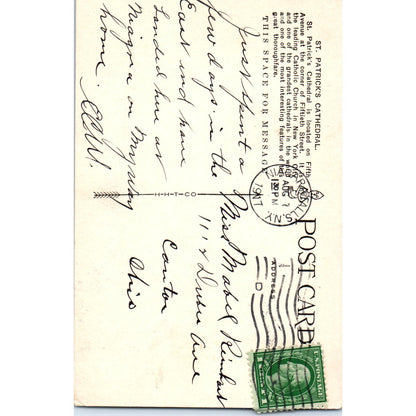 ST. PATRICK'S CATHEDRAL
St. Patrick's Cathedral is located on Fifth
Avenue at the corner of Fiftieth Street. It is
the leading Catholic Church in New York City
and one of the grandest cathedrals in the world
and one of the most interesting features of this
great thoroughfare.
THIS SPACE FOR MESSAGE
Just spent a
few days in the
East and have
landed here at
Niagara on my way
home.
H-H-T-CO
POST CARD
ADDRESS
N.Y.
AUG 7
PM
1917
Miss Mabel Rinehart
Ave
Canton
Ohio
U.S. POSTAGE